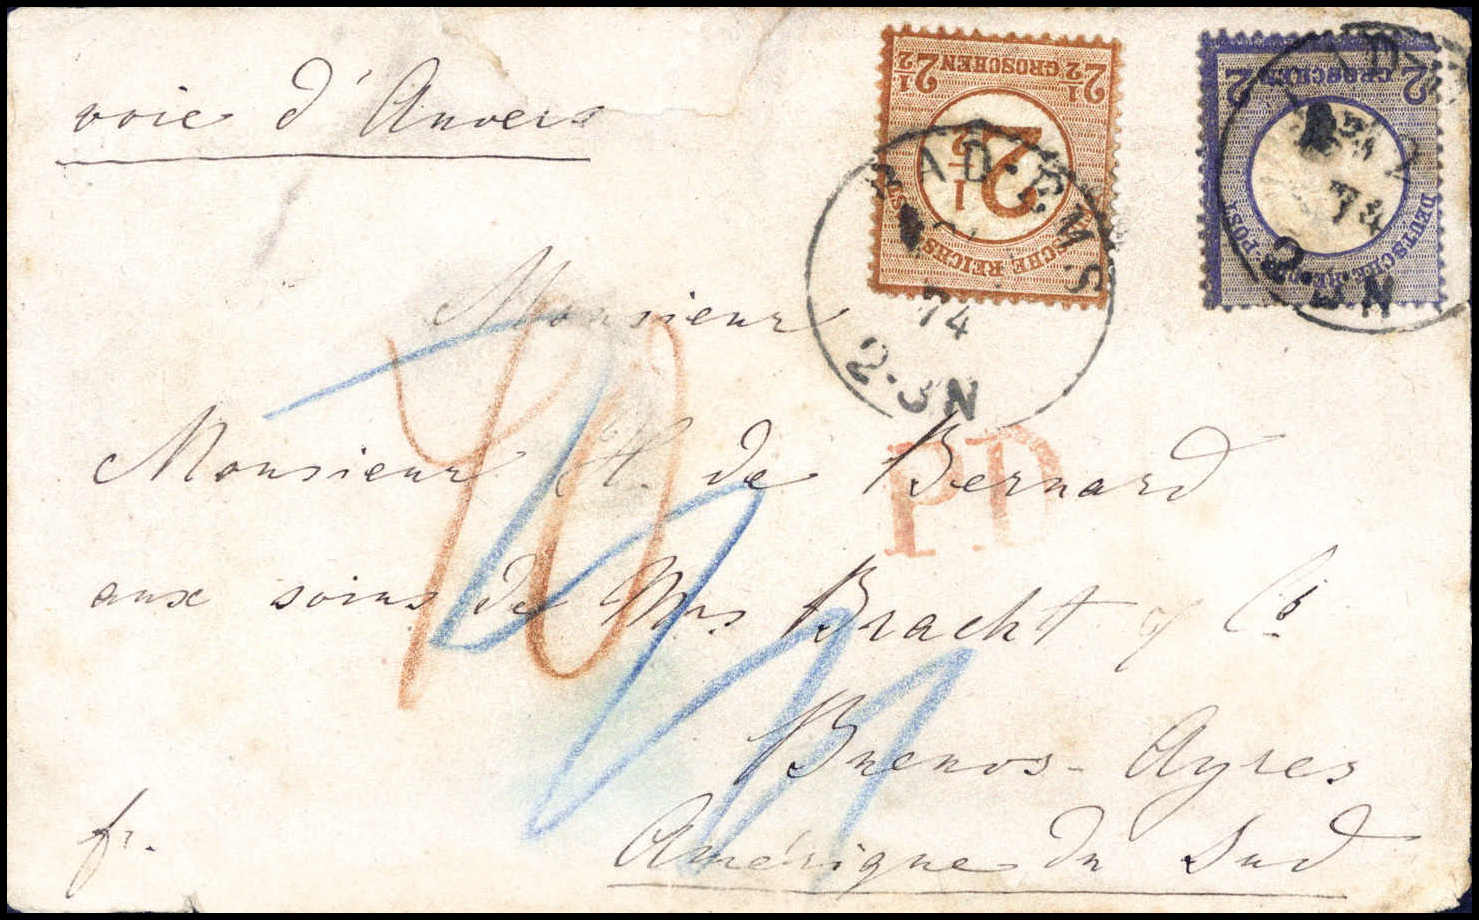 voie d'Anvers
2½ 2½
GROSCHEN
2½
SCHE REICHS
2 2
GROSCHEN
DEUTSCHE POST
BAD-EMS
74
2-3N
74
2-3N
Monsieur
PD
Monsieur H. de Bernard
aux soins de Mrs Bracht & Co
Buenos-Ayres
fr.
Amérique du Sud